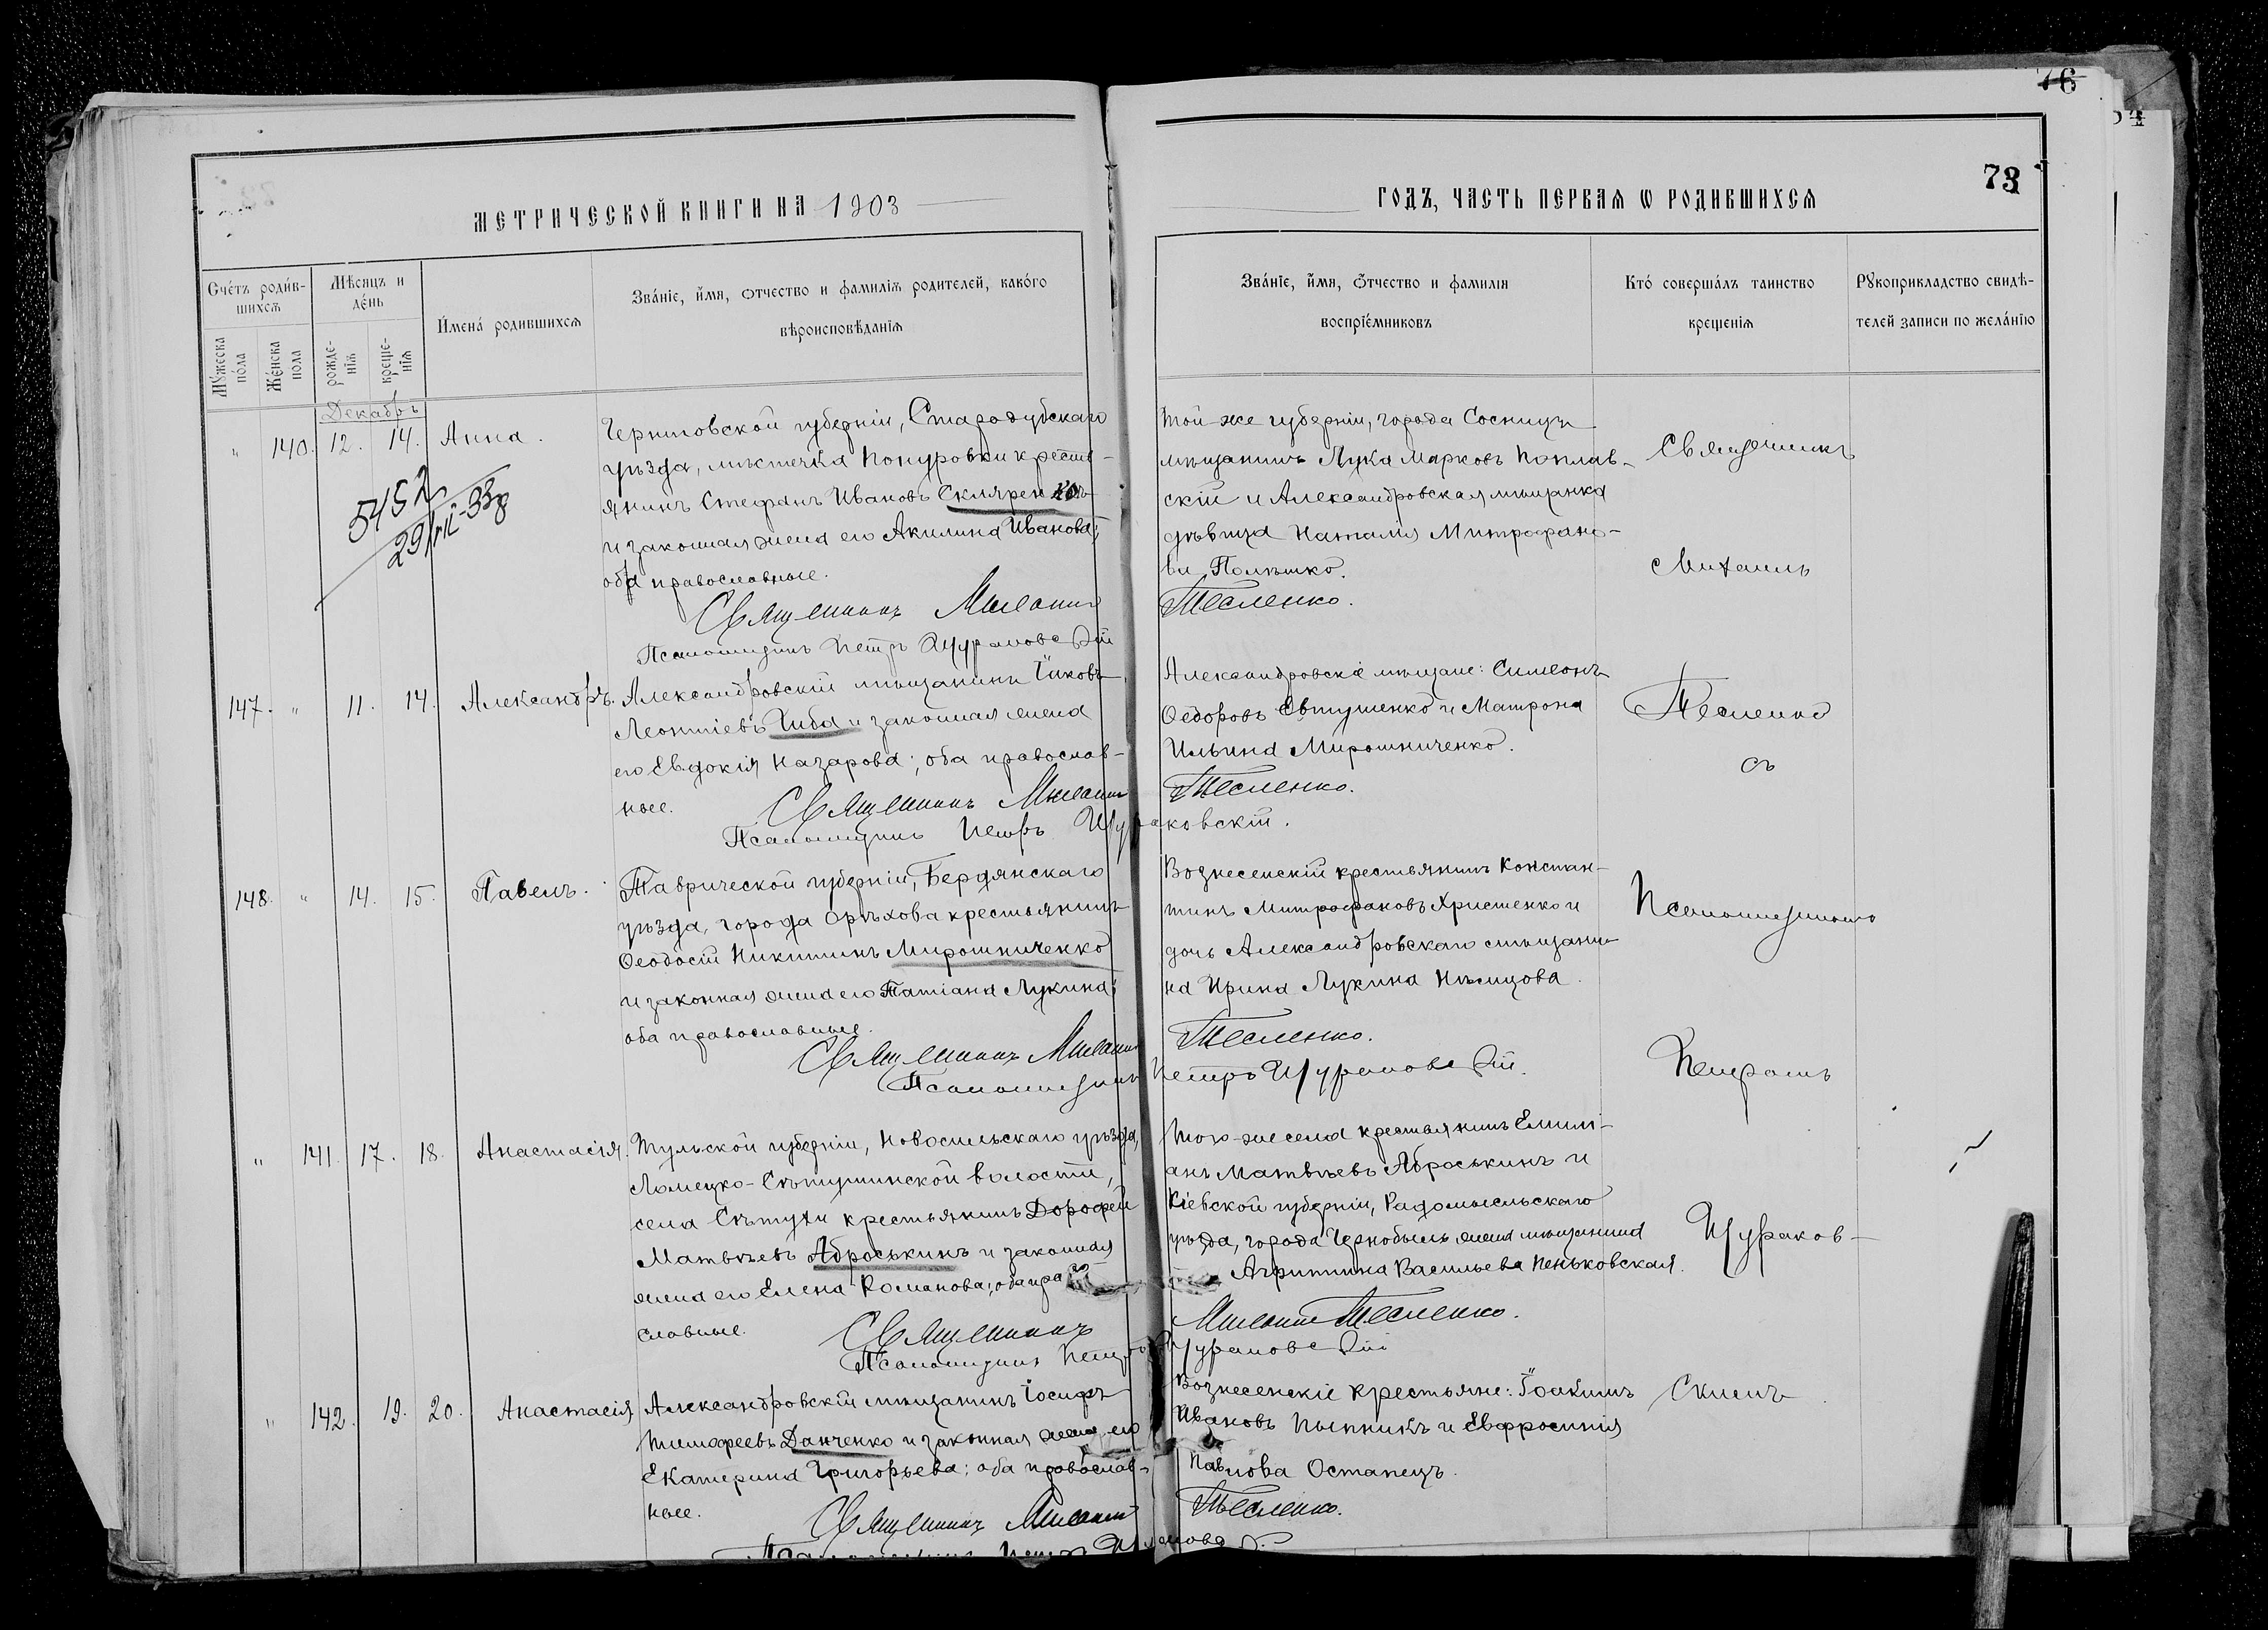 76
54
73
МЕТРИЧЕСКОЙ КНИГИ НА 1903
ГОДЪ, ЧАСТЬ ПЕРВАЯ Ѡ РОДИВШИХСЯ
Счетъ родив-
шихся
Мѣсяцъ и
день
Имена родившихся
Званіе, имя, отчество и фамилія родителей, какого
вѣроисповѣданія
Мужеска
пола
Женска
пола
рожде-
нія
креще-
нія
Званіе, имя, отчество и фамилія
воспріемниковъ
Кто совершалъ таинство
крещенія
Рукоприкладство свидѣ-
телей записи по желанію
Декабрь
" 140. 12. 14. Анна.
5452
29/VII-33г
Черниговской губерніи, Стародубскаго
уѣзда, мѣстечка Понуровки кресть-
янинъ Стефанъ Ивановъ Скляренко
и законная жена его Акилина Иванова;
оба православные.
Священникъ Михаилъ
Псаломщикъ Петръ Щураковскій
Той-же губерніи, города Сосницы
мѣщанинъ Лука Марковъ Поплав-
скій и Александровская мѣщанка
дѣвица Наталія Митрофано-
ва
Тесленко.
147. " 11. 14. Александръ.
Александровскій мѣщанинъ Іаковъ
Леонтіевъ Чиба и законная жена
его Евдокія Назарова; оба православ-
ные.
Священникъ Михаилъ
Псаломщикъ Петръ Щураковскій.
Александровскіе мѣщане: Симеонъ
Ѳедоровъ Евтушенко и Матрона
Ильина Мирошниченко.
Тесленко.
148. " 14. 15. Павелъ.
Таврической губерніи, Бердянскаго
уѣзда, города Орѣхова крестьянинъ
Ѳеодосій Никитинъ Мирошниченко
и законная жена его Татіана Лукина;
оба православные.
Священникъ Михаилъ
Псаломщикъ Петръ Щураковскій.
Вознесенскій крестьянинъ Констан-
тинъ Митрофановъ Христенко и
дочь Александровскаго мѣщани-
на Ирина Лукина Нѣмцова.
Тесленко.
" 141. 17. 18. Анастасія.
Тульской губерніи, Новосильскаго уѣзда,
Ломецко-Скътушинской волости,
села крестьянинъ Дорофей
Матвѣевъ Аброськинъ и законная
жена его Елена Романова; оба пра
славные.
Священникъ
Псаломщикъ Петръ Щураковскій
Того-же села крестьянинъ Емилі-
анъ Матвѣевъ Аброськинъ и
Кіевской губерніи, Радомысльскаго
уѣзда, города Чернобыль жена мѣщанина
Агрипина Васильева Пеньковская.
Михаилъ Тесленко.
" 142. 19. 20. Анастасія
Александровскій мѣщанинъ Іосифъ
Тимофеевъ Данченко и законная жена его
Екатерина Григорьева; оба православ-
ные.
Священникъ Михаилъ
Псаломщикъ Петръ
Вознесенскіе крестьяне: Іоакимъ
Ивановъ и Евфросинія
Павлова Остапецъ.
Тесленко.
Священникъ
Михаилъ
Тесленко
съ
Псаломщикомъ
Петромъ
Щураков-
скимъ